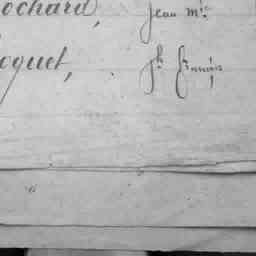 ochard, Jean M.ie
oquet, Jh François